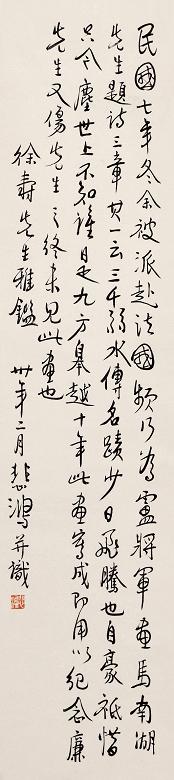 民國七年冬余被派赴法國頻行為盧將軍畫馬南湖
先生題詩三章其一云三千弱水傳名蹟少日飛騰也自豪祇惜
只今塵世上不知誰是九方皋越十年此畫寫成即用以紀念廉
先生又傷先生之終未見此畫也
徐壽先生雅鑑
卅年二月悲鴻并識